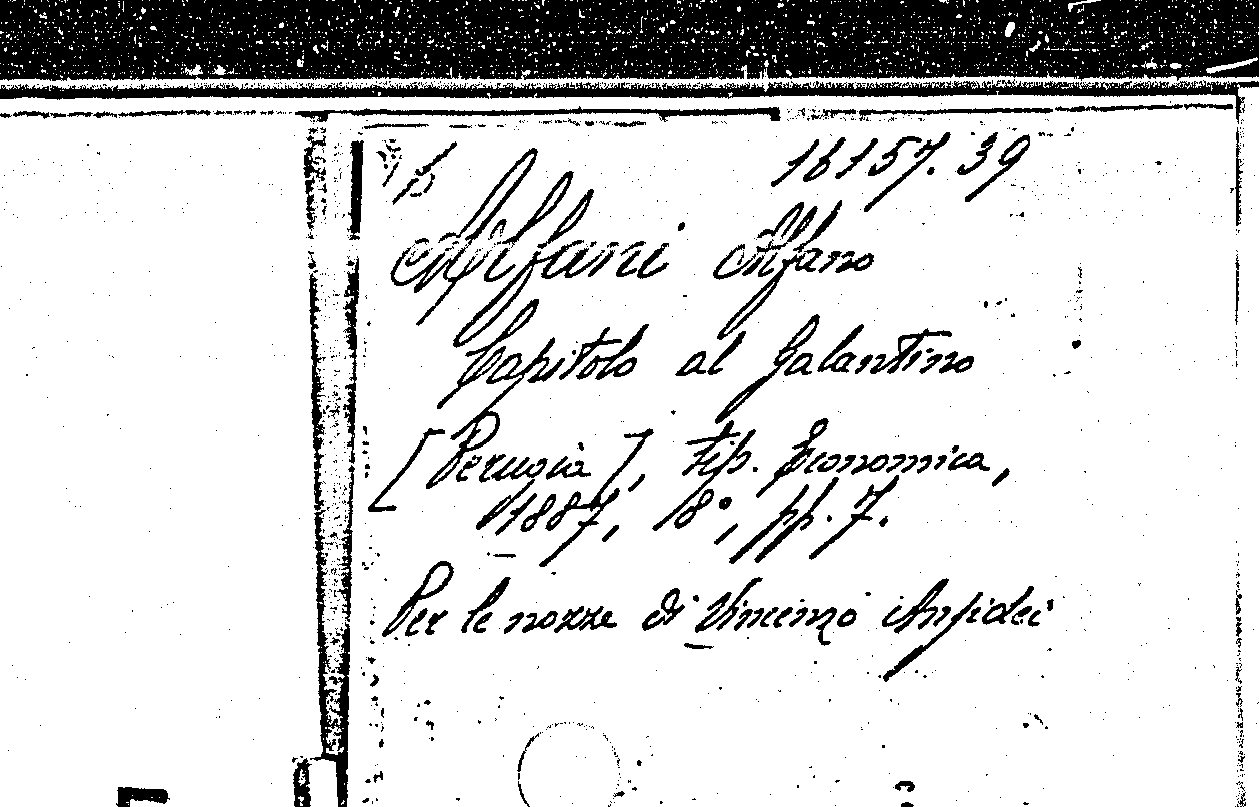 16157. 39
Alfani Alfano
Capitolo al Galantino
[Perugia], tip. Economica,
1887, 18°, pp. 7.
Per le nozze di Vincenzo Ansidei